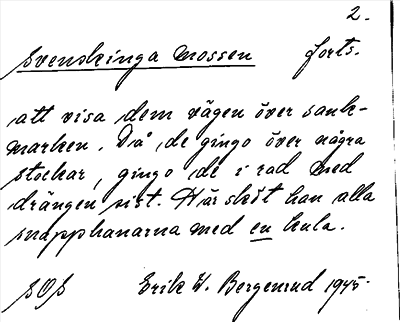 2.
Svenskinga mossen forts.
att visa dem vägen över sank-
marken. Då de gingo över några
stockar, gingo de i rad med
drängen sist. Här sköt han alla
snapphanarna med en kula.
SOS Erik W. Bergenrud 1945.